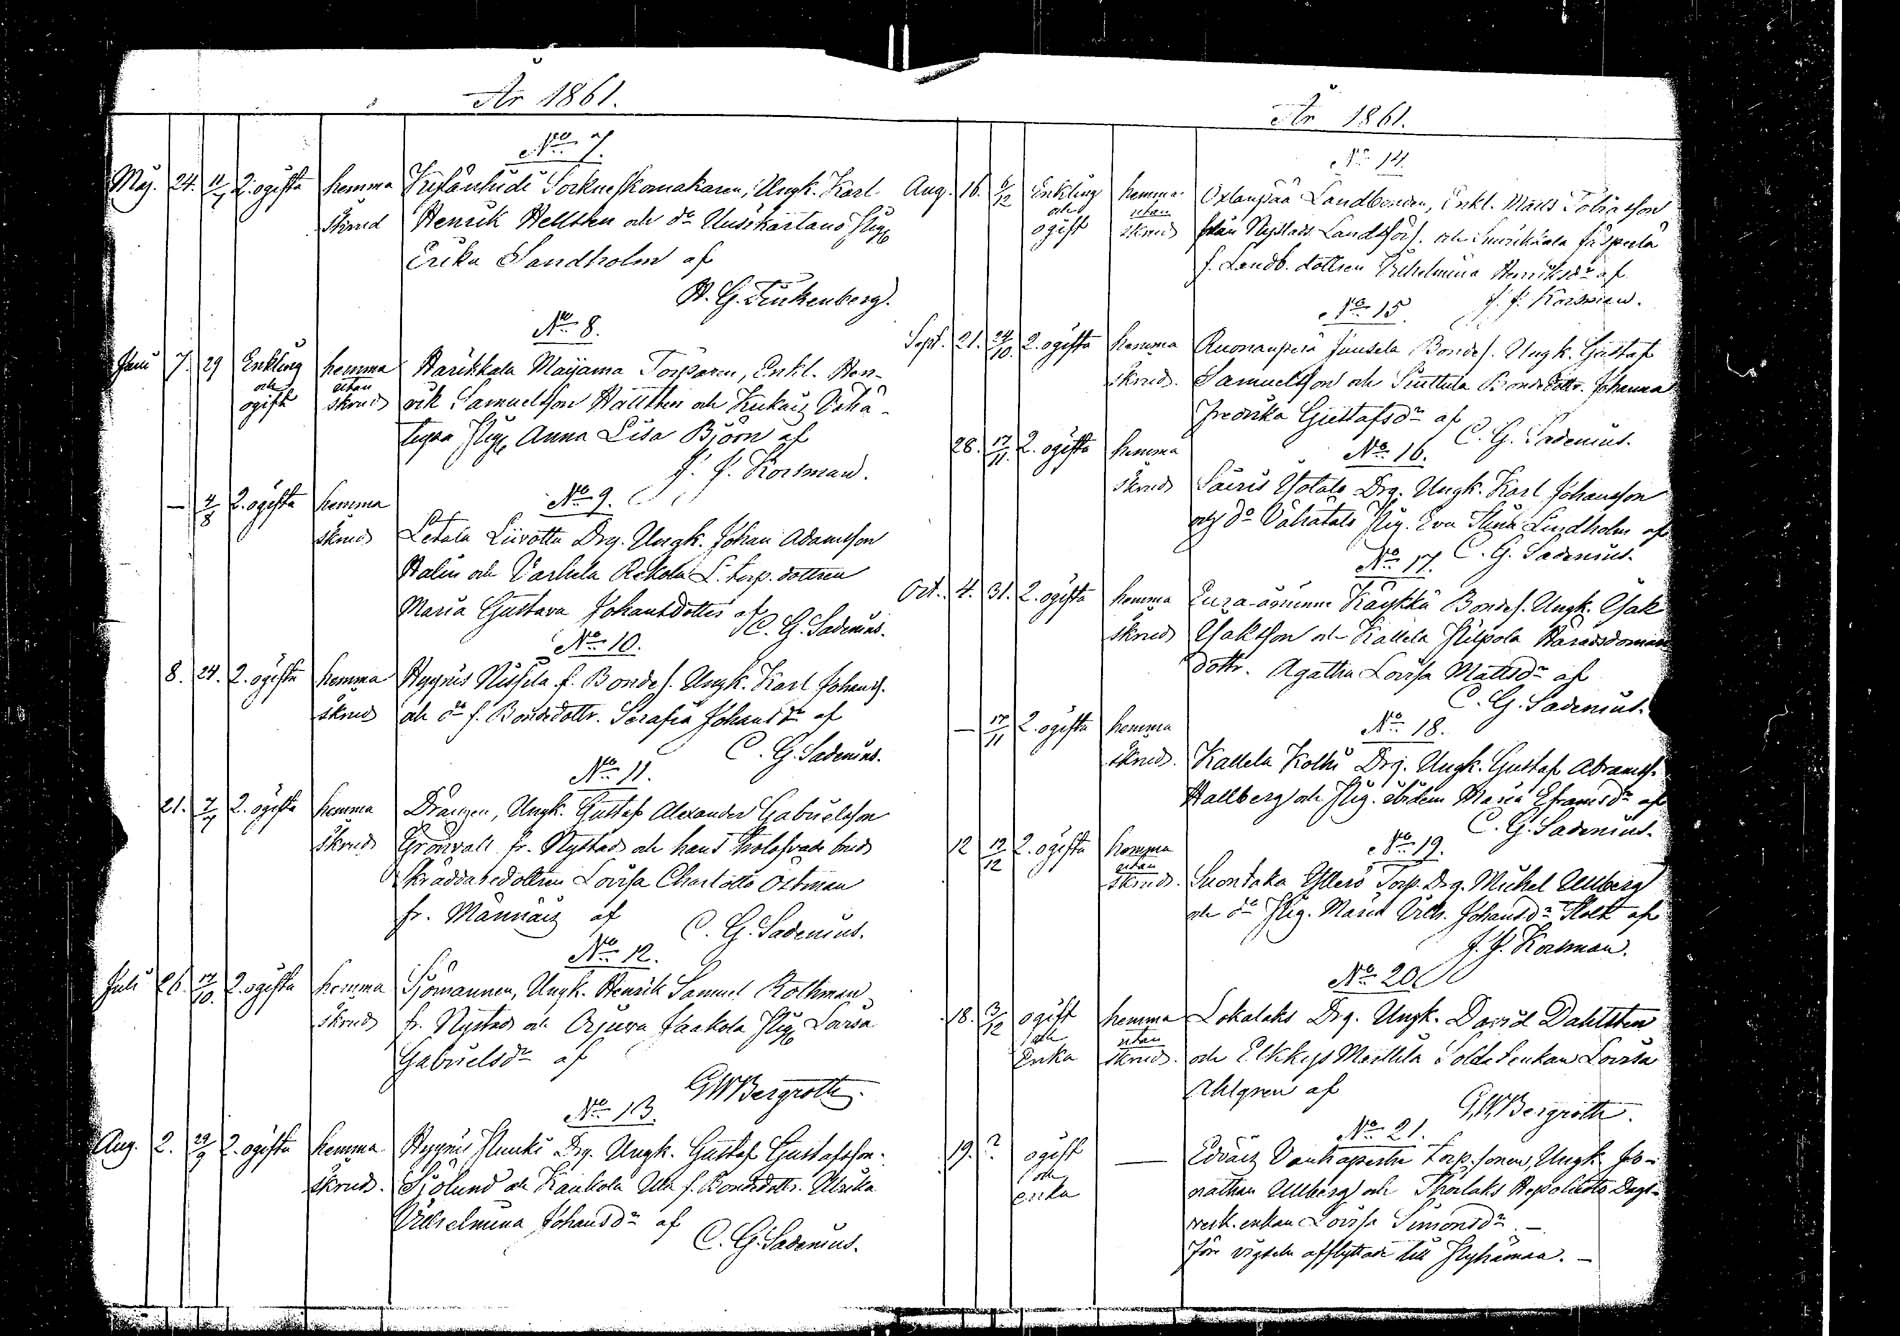 År 1861.
No 7.
Maj. 24. 11/7 2. ogifta hemma skrud
Sockneskomakaren, Ungk. Karl
Henrik Hellsten och do Uusikartano Pig.
Erika Sandholm af
H. G. Finkenberg.
No 8.
Juni 7. 29 Enkling och ogift hemma utan skrud
Harikkala Maijama Torparen, Enkl. Hen-
rik Samuelsson Hällsten och
Pig. Anna Lisa Björn af
J. J. Korsman.
No 9.
— 4/8 2. ogifta hemma skrud
Letala Liivotta Drg. Ungk. Johan Adamsson
Malin och Varhela Rekola L. torp. dottren
Maria Gustava Johansdotter af
C. G. Sadenius.
No 10.
8. 24. 2. ogifta hemma skrud
Hyynis Nissila f. Bondes. Ungk. Karl Johans.
och do f. Bondedottr. Serafia Johansdr af
C. G. Sadenius.
No 11.
21. 7/7 2. ogifta hemma skrud
Drängen, Ungk. Gustaf Alexander Gabrielsson
Grönvall fr. Nystad och hans trolofvade brud
Skräddaredottren Lovisa Charlotta Östman
fr. Männäis af
C. G. Sadenius.
No 12.
Juli 26. 17/10. 2. ogifta hemma skrud
Sjömannen, Ungk. Henrik Samuel Rothman
fr. Nystad och Orjuva Jaakola Pig. Lovisa
Gabrielsdr af
GWBergroth.
No 13.
Aug. 2. 29/9 2. ogifta hemma skrud.
Hyynis Drg. Ungk. Gustaf Gustafsson
Sjölund och Kaukola Ula f. Bondedottr. Ulrika
Vilhelmina Johansdr af
C. G. Sadenius.
År 1861.
No 14.
Aug. 16. 6/12 Enkling och ogift hemma utan skrud
Landbonden, Enkl. Matts Tobiasson
från Nystads Landsförs. och
f. Landb. dottren Vilhelmina Henriksdr af
J. J. Korsman.
No 15.
Sept. 21. 24/10. 2. ogifta hemma skrud.
Ruonanperä Juusela Bondes. Ungk. Gustaf
Samuelsson och Bondedottr. Johanna
Fredrika Gustafsdr af
C. G. Sadenius.
No 16.
28. 17/11. 2. ogifta hemma skrud
Säiris Yotalo Drg. Ungk. Karl Johansson
och do Vähätalo Pig. Eva Stina Lindholm af
C. G. Sadenius.
No 17.
Oct. 4. 31. 2. ogifta hemma skrud
Bondes. Ungk. Isak
Isaksson och Kallela Pilpola Häradsdomare
dottr. Agatha Lovisa Mattsdr af
C. G. Sadenius.
No 18.
— 17/11 2. ogifta hemma skrud.
Kallela Kolhi Drg. Ungk. Gustaf Abrams.
Hallberg och Pig. ibidem Maria Eframsdr af
C. G. Sadenius.
No 19.
12 12/12 2. ogifta hemma utan skrud.
Suontaka Yllero Torp. Drg. Michel Ullberg
och do Pig. Maria Vilh. Johansdr Stolt af
J. J. Korsman.
No 20
18. 3/12 ogift och Enka hemma utan skrud.
Lokalaks Drg. Ungk. David Dahlsten
och Elkkys Marttila Soldatenkan Lovisa
Ahlgren af
G.W.Bergroth.
No 21.
19. ? ogift och enka —
Torp. sonen, Ungk. Jo-
nathan Ullberg och Dags-
verk. enkan Lovisa Simonsdr. —
Före vigseln afflyttade till —